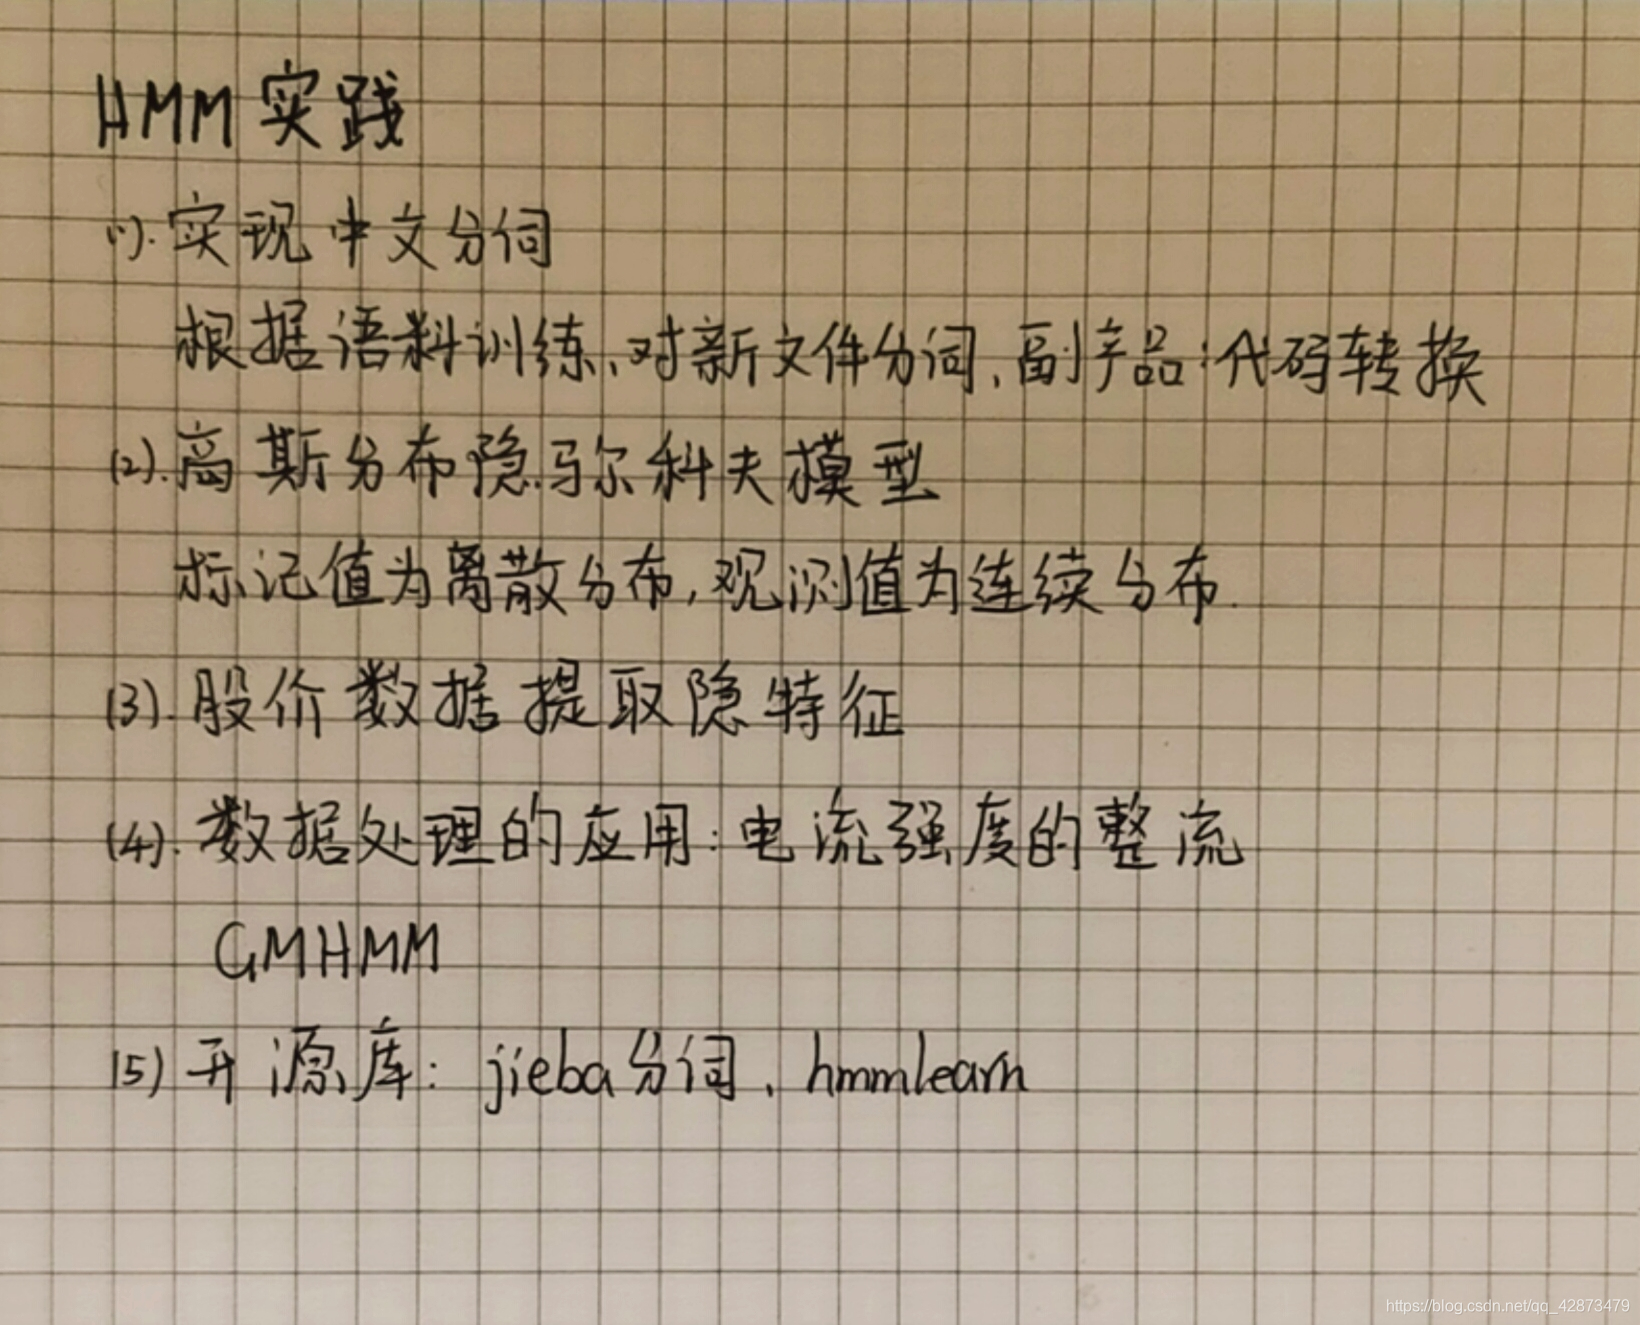 HMM 实践
(1). 实现中文分词
根据语料训练、对新文件分词、副产品:代码转换
(2). 高斯分布隐马尔科夫模型
标记值为离散分布,观测值为连续分布.
(3). 股价数据提取隐特征
(4). 数据处理的应用:电流强度的整流
GMHMM
(5) 开源库: jieba分词、hmmlearn
https://blog.csdn.net/qq_42873479